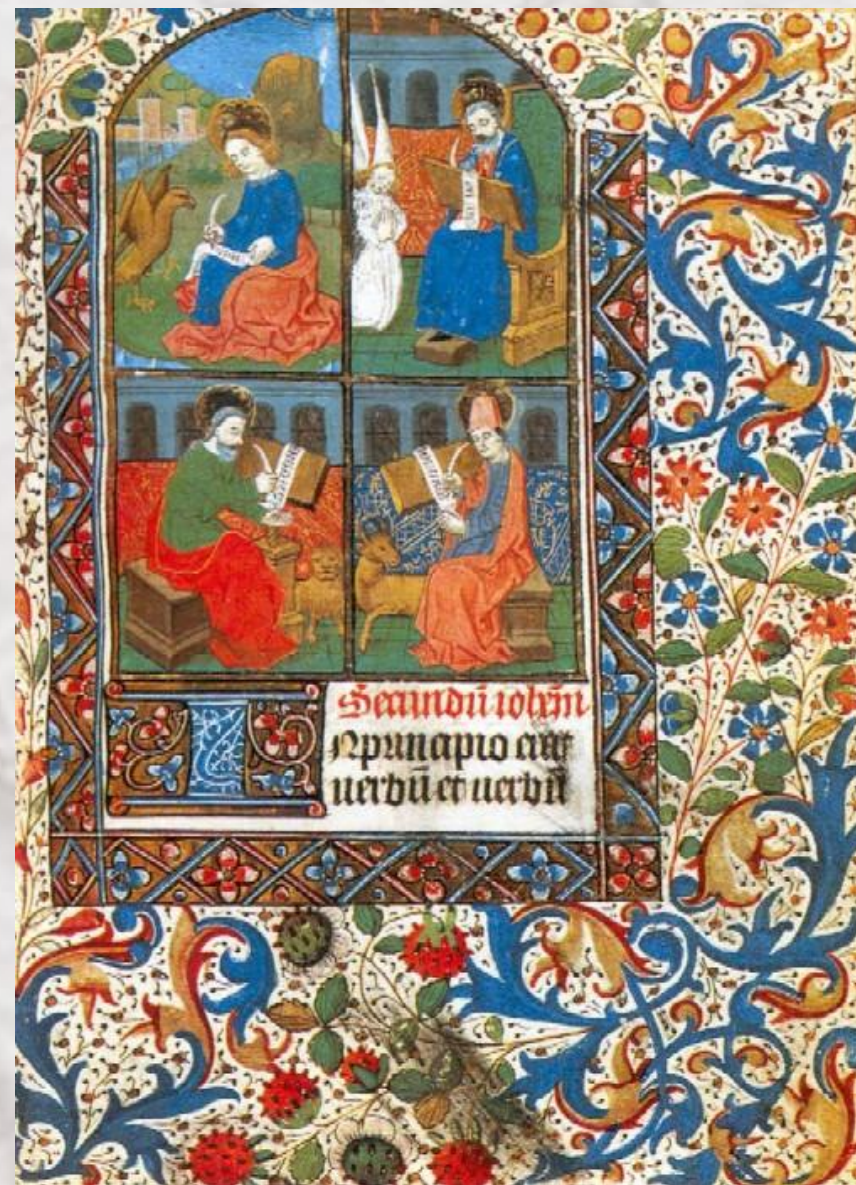 Secundū ioħem
INprincipio erat
uerbū et uerbū